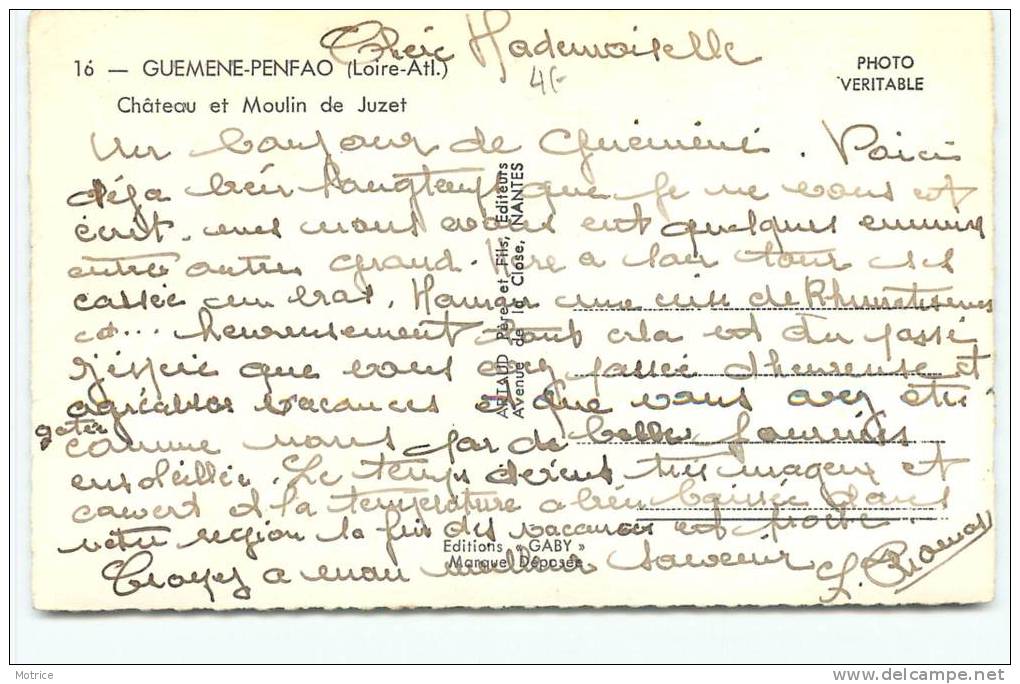 Chère Mademoiselle
16 — GUEMENE-PENFAO (Loire-Atl.)
Château et Moulin de Juzet
4f-
PHOTO
VERITABLE
Un bonjour de Guémené. Voici
déja bien longtemps que je ne vous est
écrit. nous avons eut quelques ennuis
entre autres Grand-Mère a
cassée un bras, Maman une crise de Rhumatismes
heureusement tout cela est du passé
J'espère que vous avez passée d'heureuse et
agréables vacances et que vous avez étée
gatée
comme nous par de belles journées
ensoleillée. Le temps devient très nuageux et
couvert et la température a bien baissée dans
notre region la fin des vacances est proche.
Croyez a mon meilleur souvenir
ARTAUD Père et Fils, Editeurs
Avenue de la Close, NANTES
Editions « GABY »
Marque Déposée
Motrice
delcampe.net